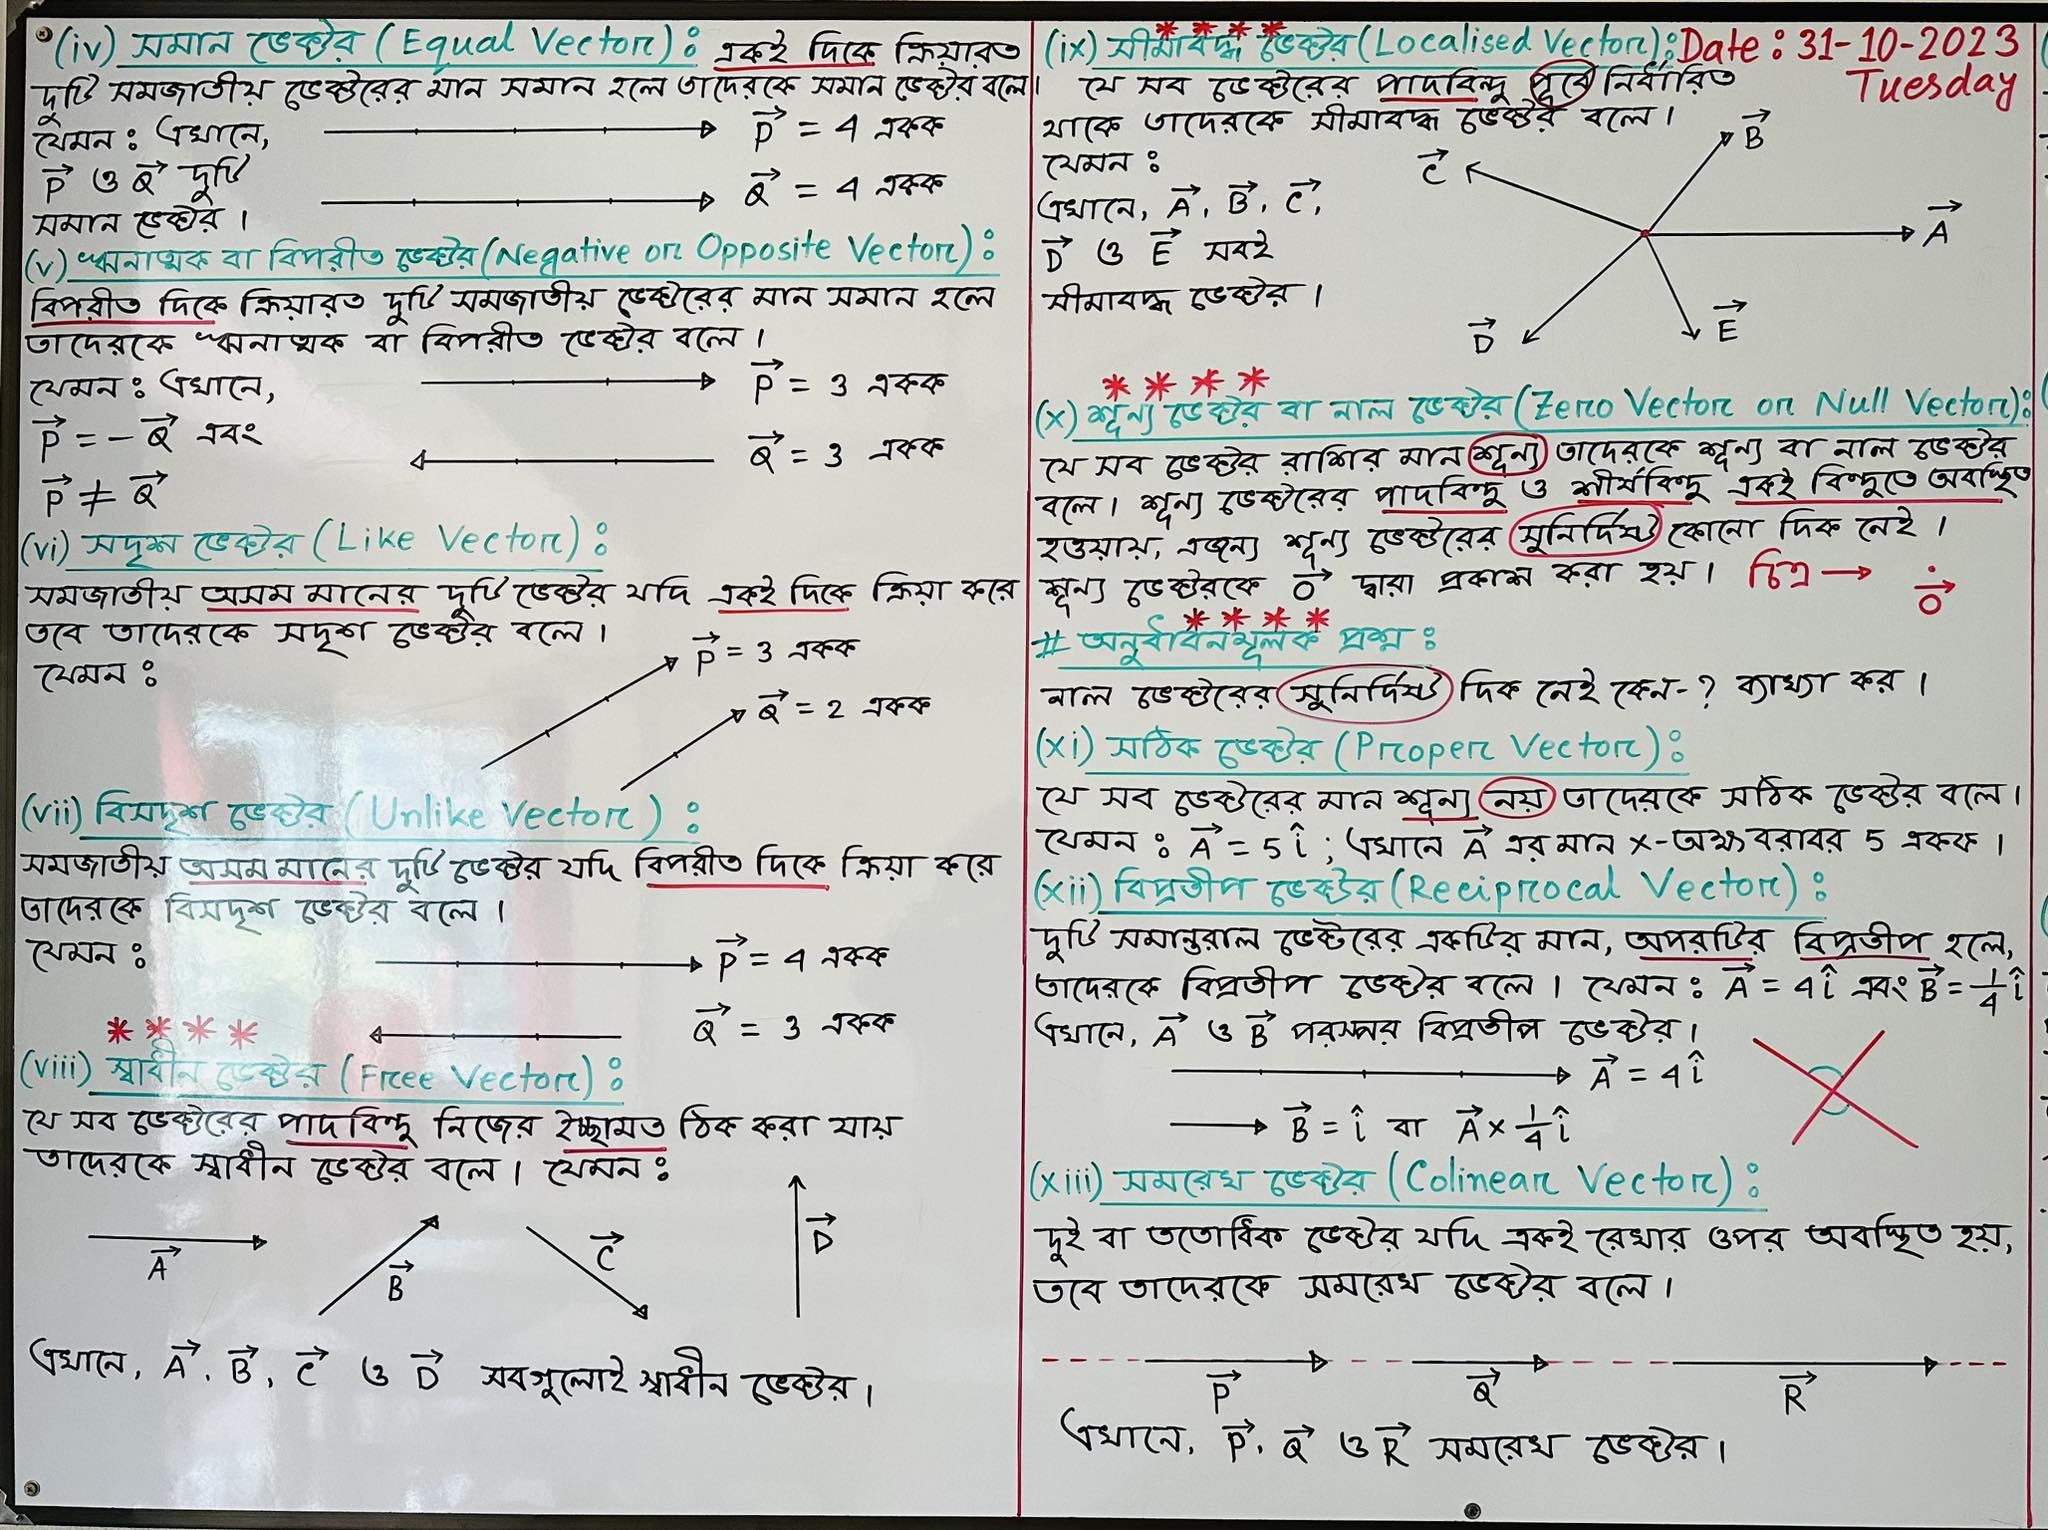 (iv) সমান ভেক্টর (Equal Vector): একই দিকে ক্রিয়ারত
দুটি সমজাতীয় ভেক্টরের মান সমান হলে তাদেরকে সমান ভেক্টর বলে।
যেমন: এখানে,
P→ = 4 একক
P→ ও Q→ দুটি
Q→ = 4 একক
সমান ভেক্টর।
(v) ঋনাত্মক বা বিপরীত ভেক্টর (Negative or Opposite Vector):
বিপরীত দিকে ক্রিয়ারত দুটি সমজাতীয় ভেক্টরের মান সমান হলে
তাদেরকে ঋনাত্মক বা বিপরীত ভেক্টর বলে।
যেমন: এখানে,
P→ = 3 একক
P→ = - Q→ এবং
Q→ = 3 একক
P→ ≠ Q→
(vi) সদৃশ ভেক্টর (Like Vector):
সমজাতীয় অসম মানের দুটি ভেক্টর যদি একই দিকে ক্রিয়া করে
তবে তাদেরকে সদৃশ ভেক্টর বলে।
যেমন:
P→ = 3 একক
Q→ = 2 একক
(vii) বিসদৃশ ভেক্টর (Unlike Vector):
সমজাতীয় অসম মানের দুটি ভেক্টর যদি বিপরীত দিকে ক্রিয়া করে
তাদেরকে বিসদৃশ ভেক্টর বলে।
যেমন:
P→ = 4 একক
Q→ = 3 একক
****
(viii) স্বাধীন ভেক্টর (Free Vector):
যে সব ভেক্টরের পাদবিন্দু নিজের ইচ্ছামত ঠিক করা যায়
তাদেরকে স্বাধীন ভেক্টর বলে। যেমন:
A→
B→
C→
D→
এখানে, A→, B→, C→ ও D→ সবগুলোই স্বাধীন ভেক্টর।
****
(ix) সীমাবদ্ধ ভেক্টর (Localised Vector):
Date: 31-10-2023
Tuesday
যে সব ভেক্টরের পাদবিন্দু পূর্বে নির্ধারিত
থাকে তাদেরকে সীমাবদ্ধ ভেক্টর বলে।
যেমন:
এখানে, A→, B→, C→,
D→ ও E→ সবই
সীমাবদ্ধ ভেক্টর।
B→
C→
A→
D→
E→
****
(x) শূন্য ভেক্টর বা নাল ভেক্টর (Zero Vector or Null Vector):
যে সব ভেক্টর রাশির মান শূন্য তাদেরকে শূন্য বা নাল ভেক্টর
বলে। শূন্য ভেক্টরের পাদবিন্দু ও শীর্ষবিন্দু একই বিন্দুতে অবস্থিত
হওয়ায়, এজন্য শূন্য ভেক্টরের সুনির্দিষ্ট কোনো দিক নেই।
শূন্য ভেক্টরকে 0→ দ্বারা প্রকাশ করা হয়। চিত্র → 0→
****
# অনুধাবনমূলক প্রশ্ন:
নাল ভেক্টরের সুনির্দিষ্ট দিক নেই কেন-? ব্যাখ্যা কর।
(xi) সঠিক ভেক্টর (Proper Vector):
যে সব ভেক্টরের মান শূন্য নয় তাদেরকে সঠিক ভেক্টর বলে।
যেমন: A→ = 5î ; এখানে A→ এর মান x-অক্ষ বরাবর 5 একক।
(xii) বিপ্রতীপ ভেক্টর (Reciprocal Vector):
দুটি সমান্তরাল ভেক্টরের একটির মান, অপরটির বিপ্রতীপ হলে,
তাদেরকে বিপ্রতীপ ভেক্টর বলে। যেমন: A→ = 4î এবং B→ = 1/4 î
এখানে, A→ ও B→ পরস্পর বিপ্রতীপ ভেক্টর।
A→ = 4î
B→ = î বা A→ × 1/4 î
(xiii) সমরেখ ভেক্টর (Colinear Vector):
দুই বা ততোধিক ভেক্টর যদি একই রেখার ওপর অবস্থিত হয়,
তবে তাদেরকে সমরেখ ভেক্টর বলে।
P→
Q→
R→
এখানে, P→, Q→ ও R→ সমরেখ ভেক্টর।